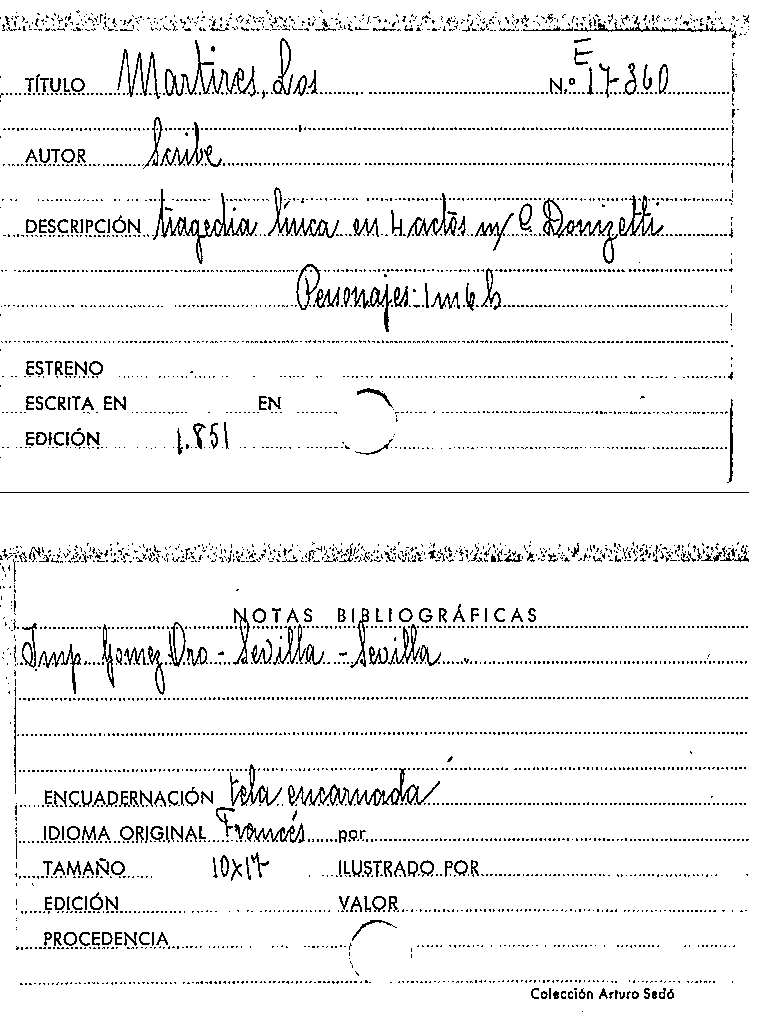 E
TÍTULO Martires, Los N.º 17-360
AUTOR Scribe
DESCRIPCIÓN tragedia lírica en 4 actos m/ C. Donizetti
Personajes: 1 m 6 h
ESTRENO
ESCRITA EN EN
EDICIÓN 1.851
NOTAS BIBLIOGRÁFICAS
Imp. Gomez Oro - Sevilla - Sevilla
ENCUADERNACIÓN tela encarnada
IDIOMA ORIGINAL Francés por
TAMAÑO 10x17 ILUSTRADO POR
EDICIÓN VALOR
PROCEDENCIA
Colección Arturo Sedó